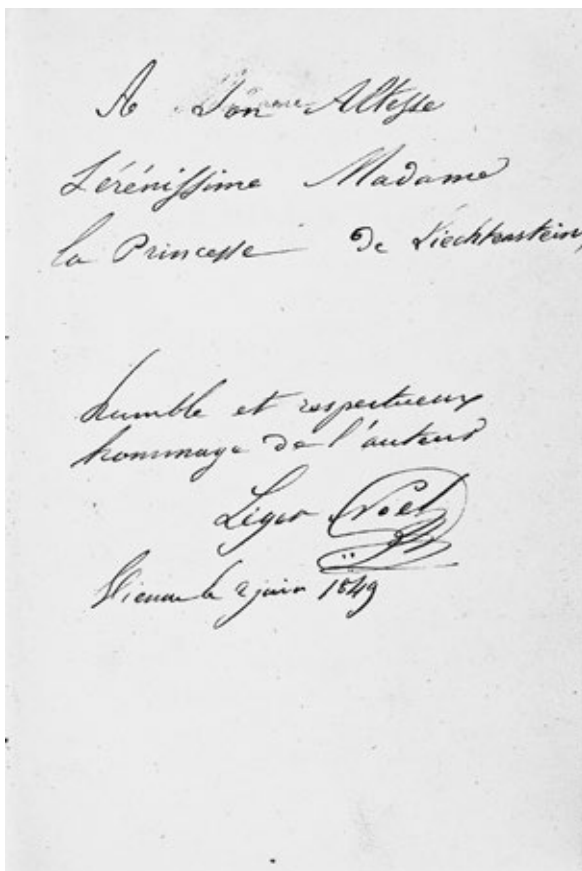 A Son Altesse
Sérénissime Madame
la Princesse de Liechtenstein,
humble et respectueux
hommage de l'auteur
Léger Noël
Vienne le 2 juin 1849